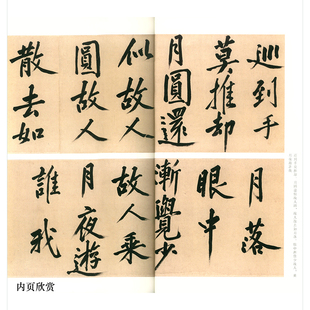 巡到手
莫推却
月圓還
似故人
圓故人
散去如
月落
眼中
漸覺少
故人乘
月夜遊
誰我
内页欣赏